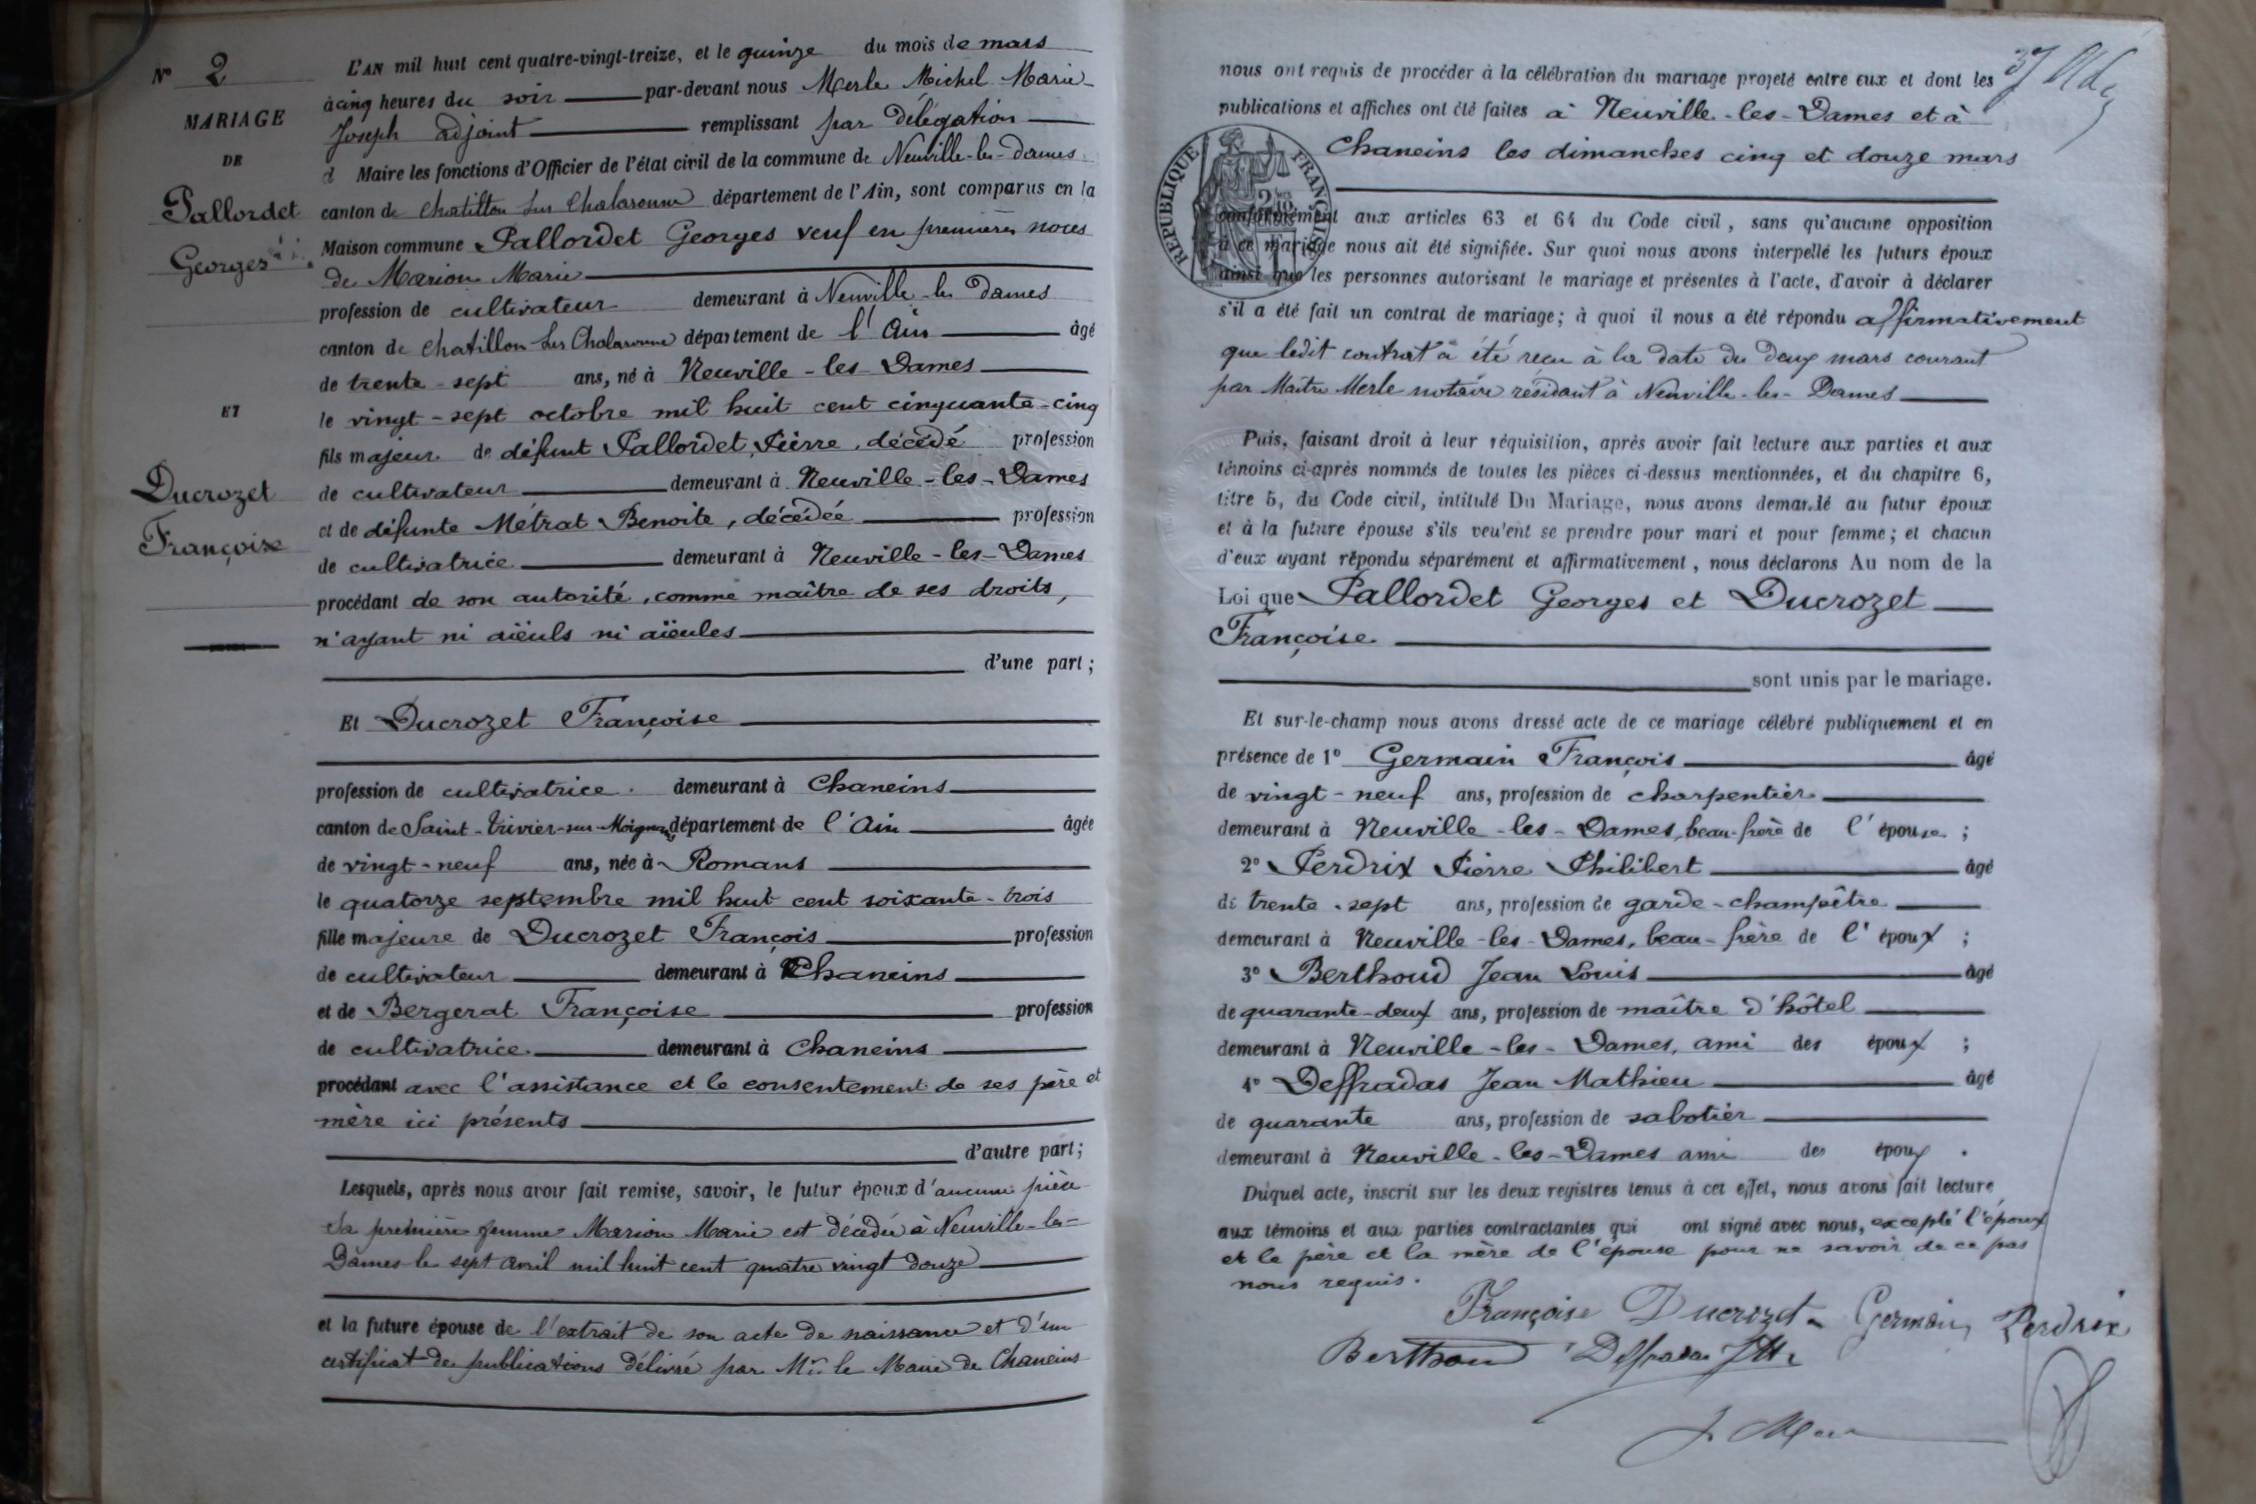 N° 2
MARIAGE
DE
Pallordet
Georges
ET
Ducrozet
Françoise
L'AN mil huit cent quatre-vingt-treize, et le quinze du mois de mars
à cinq heures du soir par-devant nous Merle Michel Marie
Joseph adjoint remplissant par Délégation
d Maire les fonctions d'Officier de l'état civil de la commune de Neuville-les-Dames
canton de Chatillon sur Chalaronne département de l'Ain, sont comparus en la
Maison commune Pallordet Georges veuf en premières noces
de Marion Marie
profession de cultivateur demeurant à Neuville les Dames
canton de Chatillon sur Chalaronne département de l'Ain âgé
de trente-sept ans, né à Neuville-les-Dames
le vingt-sept octobre mil huit cent cinquante-cinq
fils majeur de défunt Pallordet Pierre, décédé profession
de cultivateur demeurant à Neuville-les-Dames
et de défunte Métrat Benoite, décédée profession
de cultivatrice demeurant à Neuville-les-Dames
procédant de son autorité, comme maître de ses droits,
n'ayant ni aïeuls ni aïeules
d'une part;
Et Ducrozet Françoise
profession de cultivatrice demeurant à Chaneins
canton de Saint-Trivier-sur-Moignans département de l'Ain âgée
de vingt-neuf ans, née à Romans
le quatorze septembre mil huit cent soixante-trois
fille majeure de Ducrozet François profession
de cultivateur demeurant à Chaneins
et de Bergerat Françoise profession
de cultivatrice demeurant à Chaneins
procédant avec l'assistance et le consentement de ses père et
mère ici présents
d'autre part;
Lesquels, après nous avoir fait remise, savoir, le futur époux d'aucune pièce
Sa première femme Marion Marie est décédée à Neuville-les-
Dames le sept avril mil huit cent quatre vingt douze
et la future épouse de l'extrait de son acte de naissance et d'un
certificat de publications délivré par Mr. le Maire de Chaneins
nous ont requis de procéder à la célébration du mariage projeté entre eux et dont les
publications et affiches ont été faites à Neuville-les-Dames et à
Chaneins les dimanches cinq et douze mars
RÉPUBLIQUE FRANÇAISE
conformément aux articles 63 et 64 du Code civil, sans qu'aucune opposition
à ce mariage nous ait été signifiée. Sur quoi nous avons interpellé les futurs époux
ainsi que les personnes autorisant le mariage et présentes à l'acte, d'avoir à déclarer
s'il a été fait un contrat de mariage; à quoi il nous a été répondu affirmativement
que ledit contrat a été reçu à la date du deux mars courant
par Maître Merle notaire résidant à Neuville-les-Dames
Puis, faisant droit à leur réquisition, après avoir fait lecture aux parties et aux
témoins ci-après nommés de toutes les pièces ci-dessus mentionnées, et du chapitre 6,
titre 5, du Code civil, intitulé Du Mariage, nous avons demandé au futur époux
et à la future épouse s'ils veulent se prendre pour mari et pour femme; et chacun
d'eux ayant répondu séparément et affirmativement, nous déclarons Au nom de la
Loi que Pallordet Georges et Ducrozet
Françoise
sont unis par le mariage.
Et sur-le-champ nous avons dressé acte de ce mariage célébré publiquement et en
présence de 1° Germain François âgé
de vingt-neuf ans, profession de charpentier
demeurant à Neuville-les-Dames, beau-frère de l'épouse;
2° Perdrix Pierre Philibert âgé
de trente-sept ans, profession de garde-champêtre
demeurant à Neuville-les-Dames, beau-frère de l'époux;
3° Berthoud Jean Louis âgé
de quarante-deux ans, profession de maître d'hôtel
demeurant à Neuville-les-Dames, ami des époux;
4° Deffradas Jean Mathieu âgé
de quarante ans, profession de sabotier
demeurant à Neuville-les-Dames ami des époux.
Duquel acte, inscrit sur les deux registres tenus à cet effet, nous avons fait lecture
aux témoins et aux parties contractantes qui ont signé avec nous, excepté l'époux
et le père et la mère de l'épouse pour ne savoir de ce pas
nous requis.
Françoise Ducrozet Germain Perdrix
Berthoud Deffradas